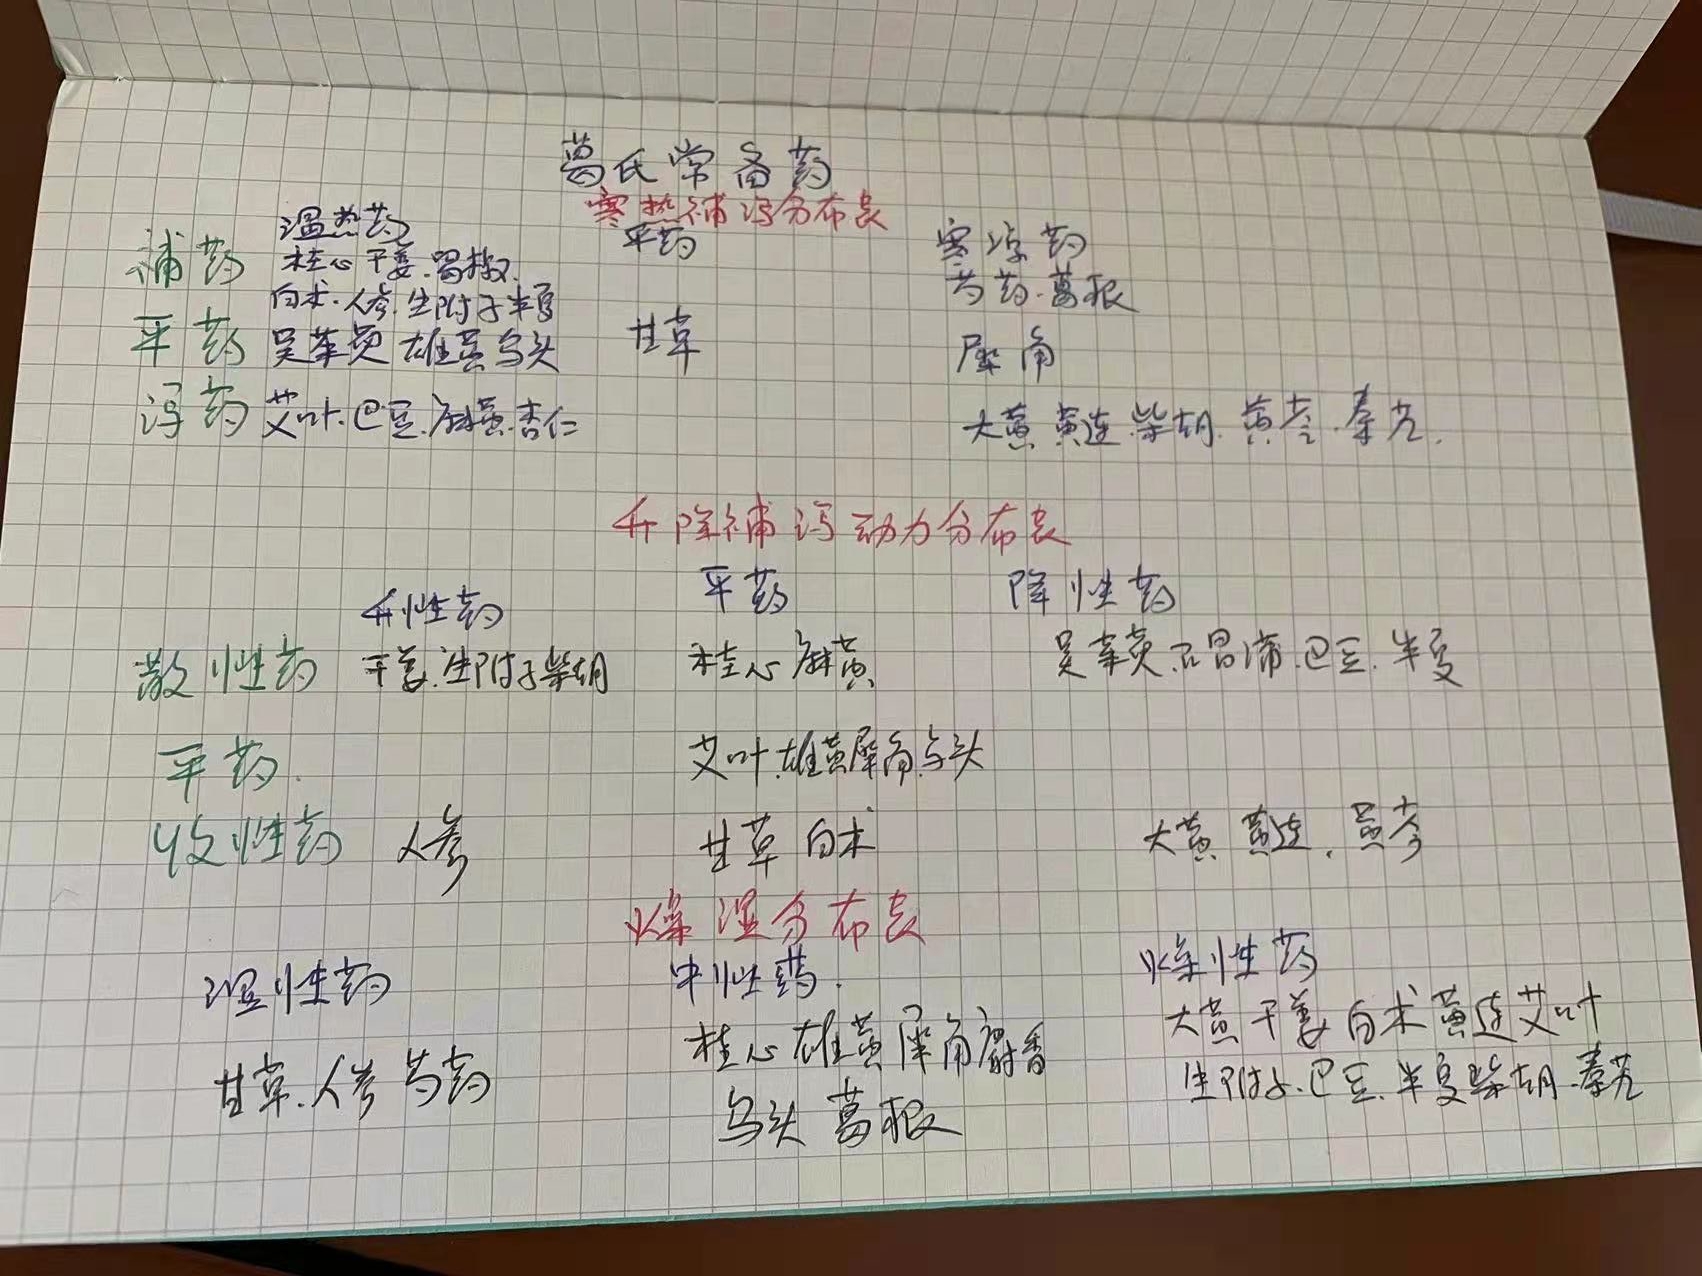 葛氏常备药
寒热补泻分布表
温热药 平药 寒凉药
补药 桂心 干姜.蜀椒. 芍药.葛根
白术.人参.生附子半夏
平药 吴茱萸 雄黄乌头 甘草 犀角
泻药 艾叶.巴豆.麻黄.杏仁 大黄 黄连.柴胡.黄芩.秦艽.
升降补泻动力分布表
升性药 平药 降性药
散性药 干姜.生附子柴胡 桂心 麻黄 吴茱萸.石昌蒲.巴豆.半夏
平药. 艾叶.雄黄犀角.乌头
收性药 人参 甘草 白术 大黄 黄连.黄芩
燥湿分布表
湿性药 中性药. 燥性药
甘草.人参 芍药 桂心 雄黄 犀角麝香 大黄 干姜 白术 黄连艾叶
乌头 葛根 生附子.巴豆.半夏柴胡.秦艽